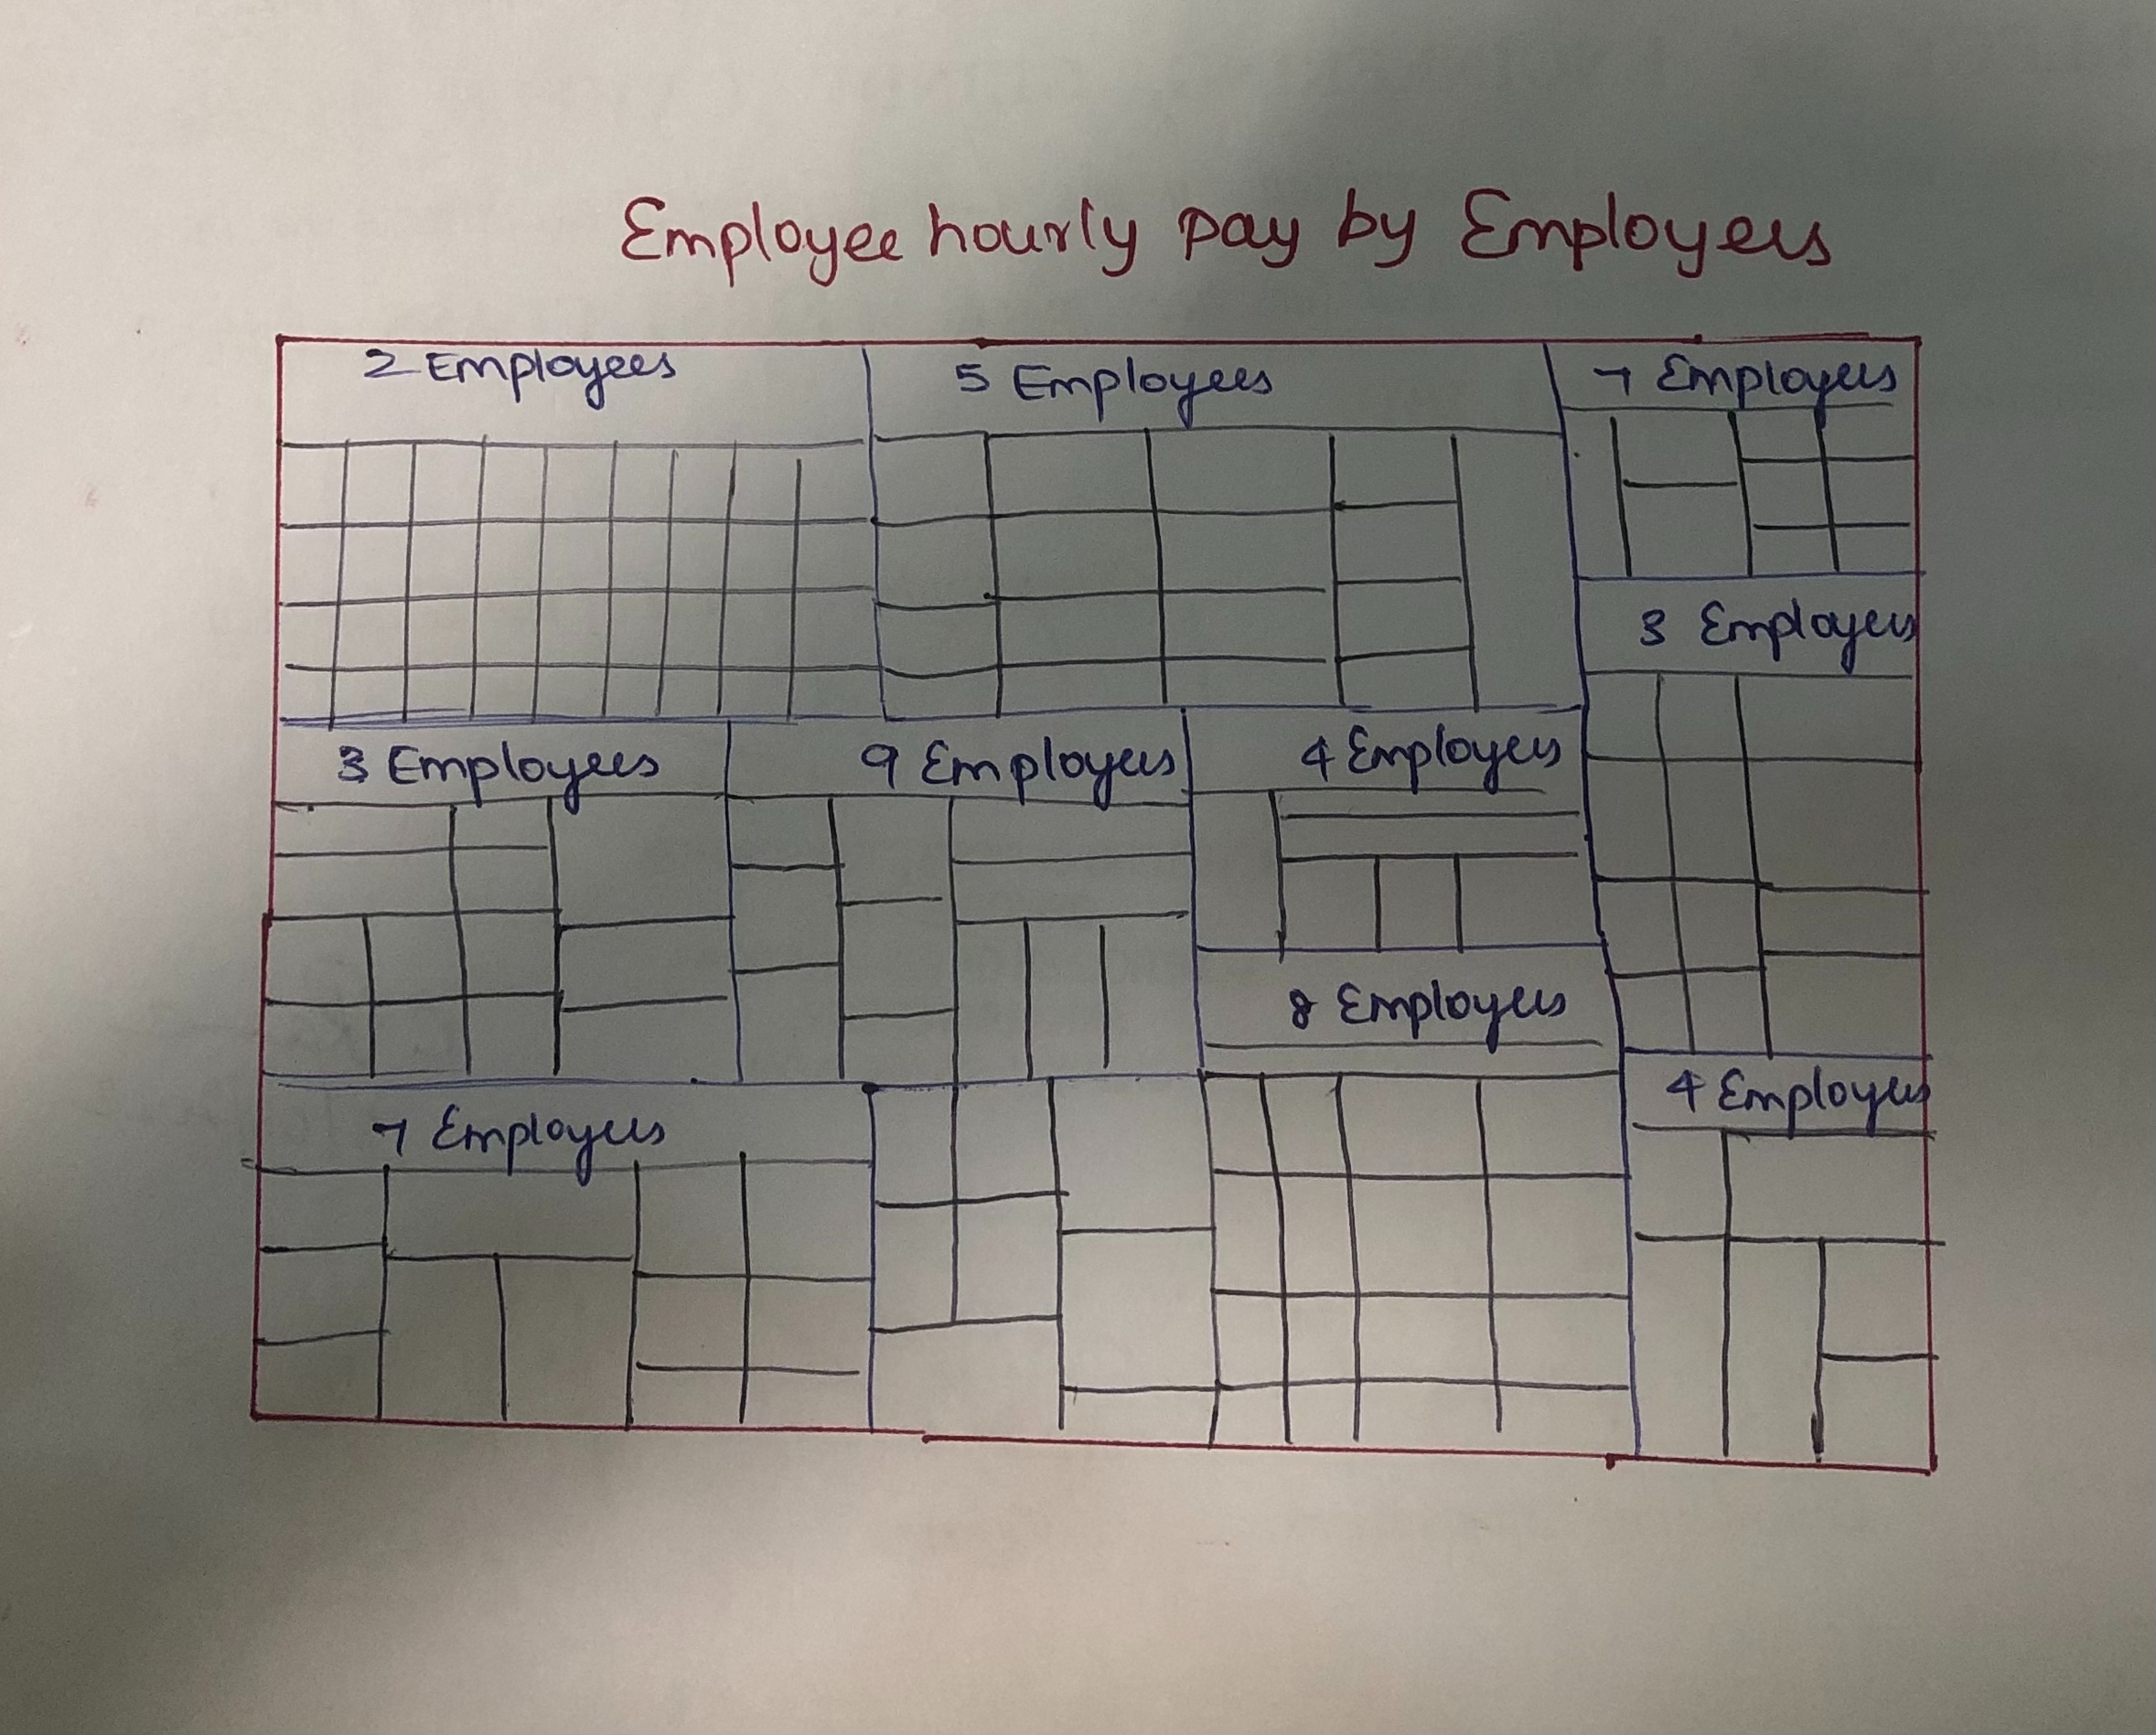 Employee hourly pay by Employers
2 Employees
5 Employees
7 Employees
3 Employees
3 Employees
9 Employees
4 Employees
8 Employees
4 Employees
7 Employees